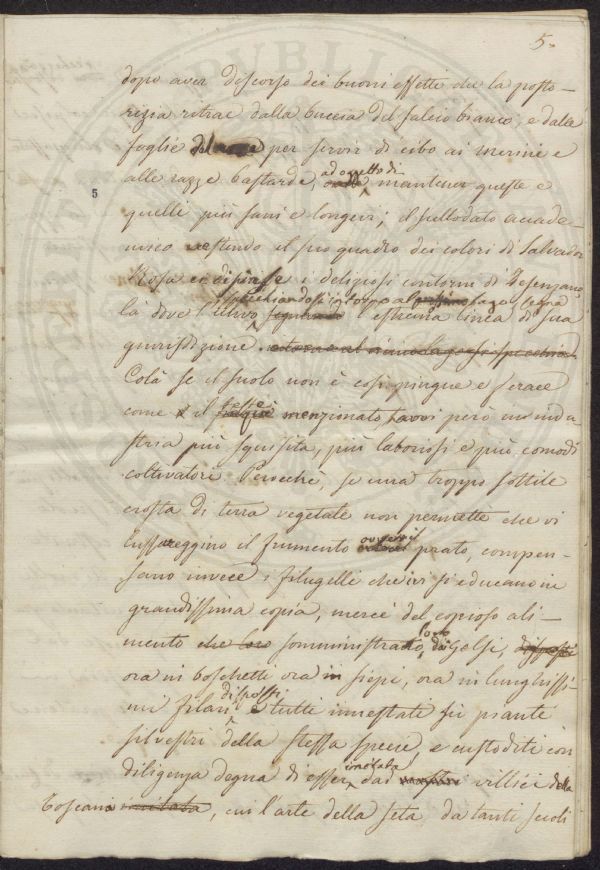 5.
dopo aver discorso dei buoni effetti che la pasto-
rizia ritrae dalla buccia del salcio bianco, e dalle
foglie per servir di cibo ai merini e
alle razze bastarde, ad oggetto di mantener queste e
5
quelli più sani e longevi; il sullodato accade-
mico vestendo il suo quadro dei colori di Salvador
Rosa ci dipinse i deliziosi contorni di Desenzano
specchiandosi intorno al lago segna
là dove l'ulivo l'estrema linea di sua
giurisdizione
Colà se il suolo non è così pingue e ferace
come il testè menzionato havvi però un'indu-
stria più squisita, più laboriosi e più comodi
coltivatori. Perocchè, se una troppo sottile
crosta di terra vegetale non permette che vi
lussureggino il frumento ovvero il prato, compen-
sano invece i filugelli che ivi si educano in
grandissima copia, mercè del copioso ali-
mento che loro somministrato loro dai Gelsi, disposti
ora in boschetti ora in siepi, ora in lunghissi-
mi filari disposti e tutti innestati su piante
silvestri della stessa specie, e custoditi con
diligenza degna di esser imitata dai villici della
Toscana imitata, cui l'arte della seta da tanti secoli